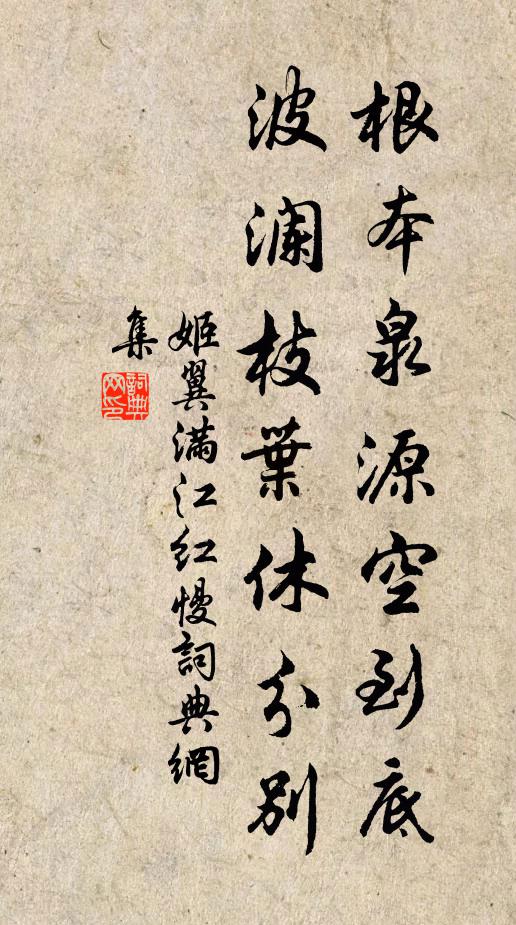 根本泉源空到底
波澜枝葉休分别
姬翼满江红慢詞典網
集
詞典网印